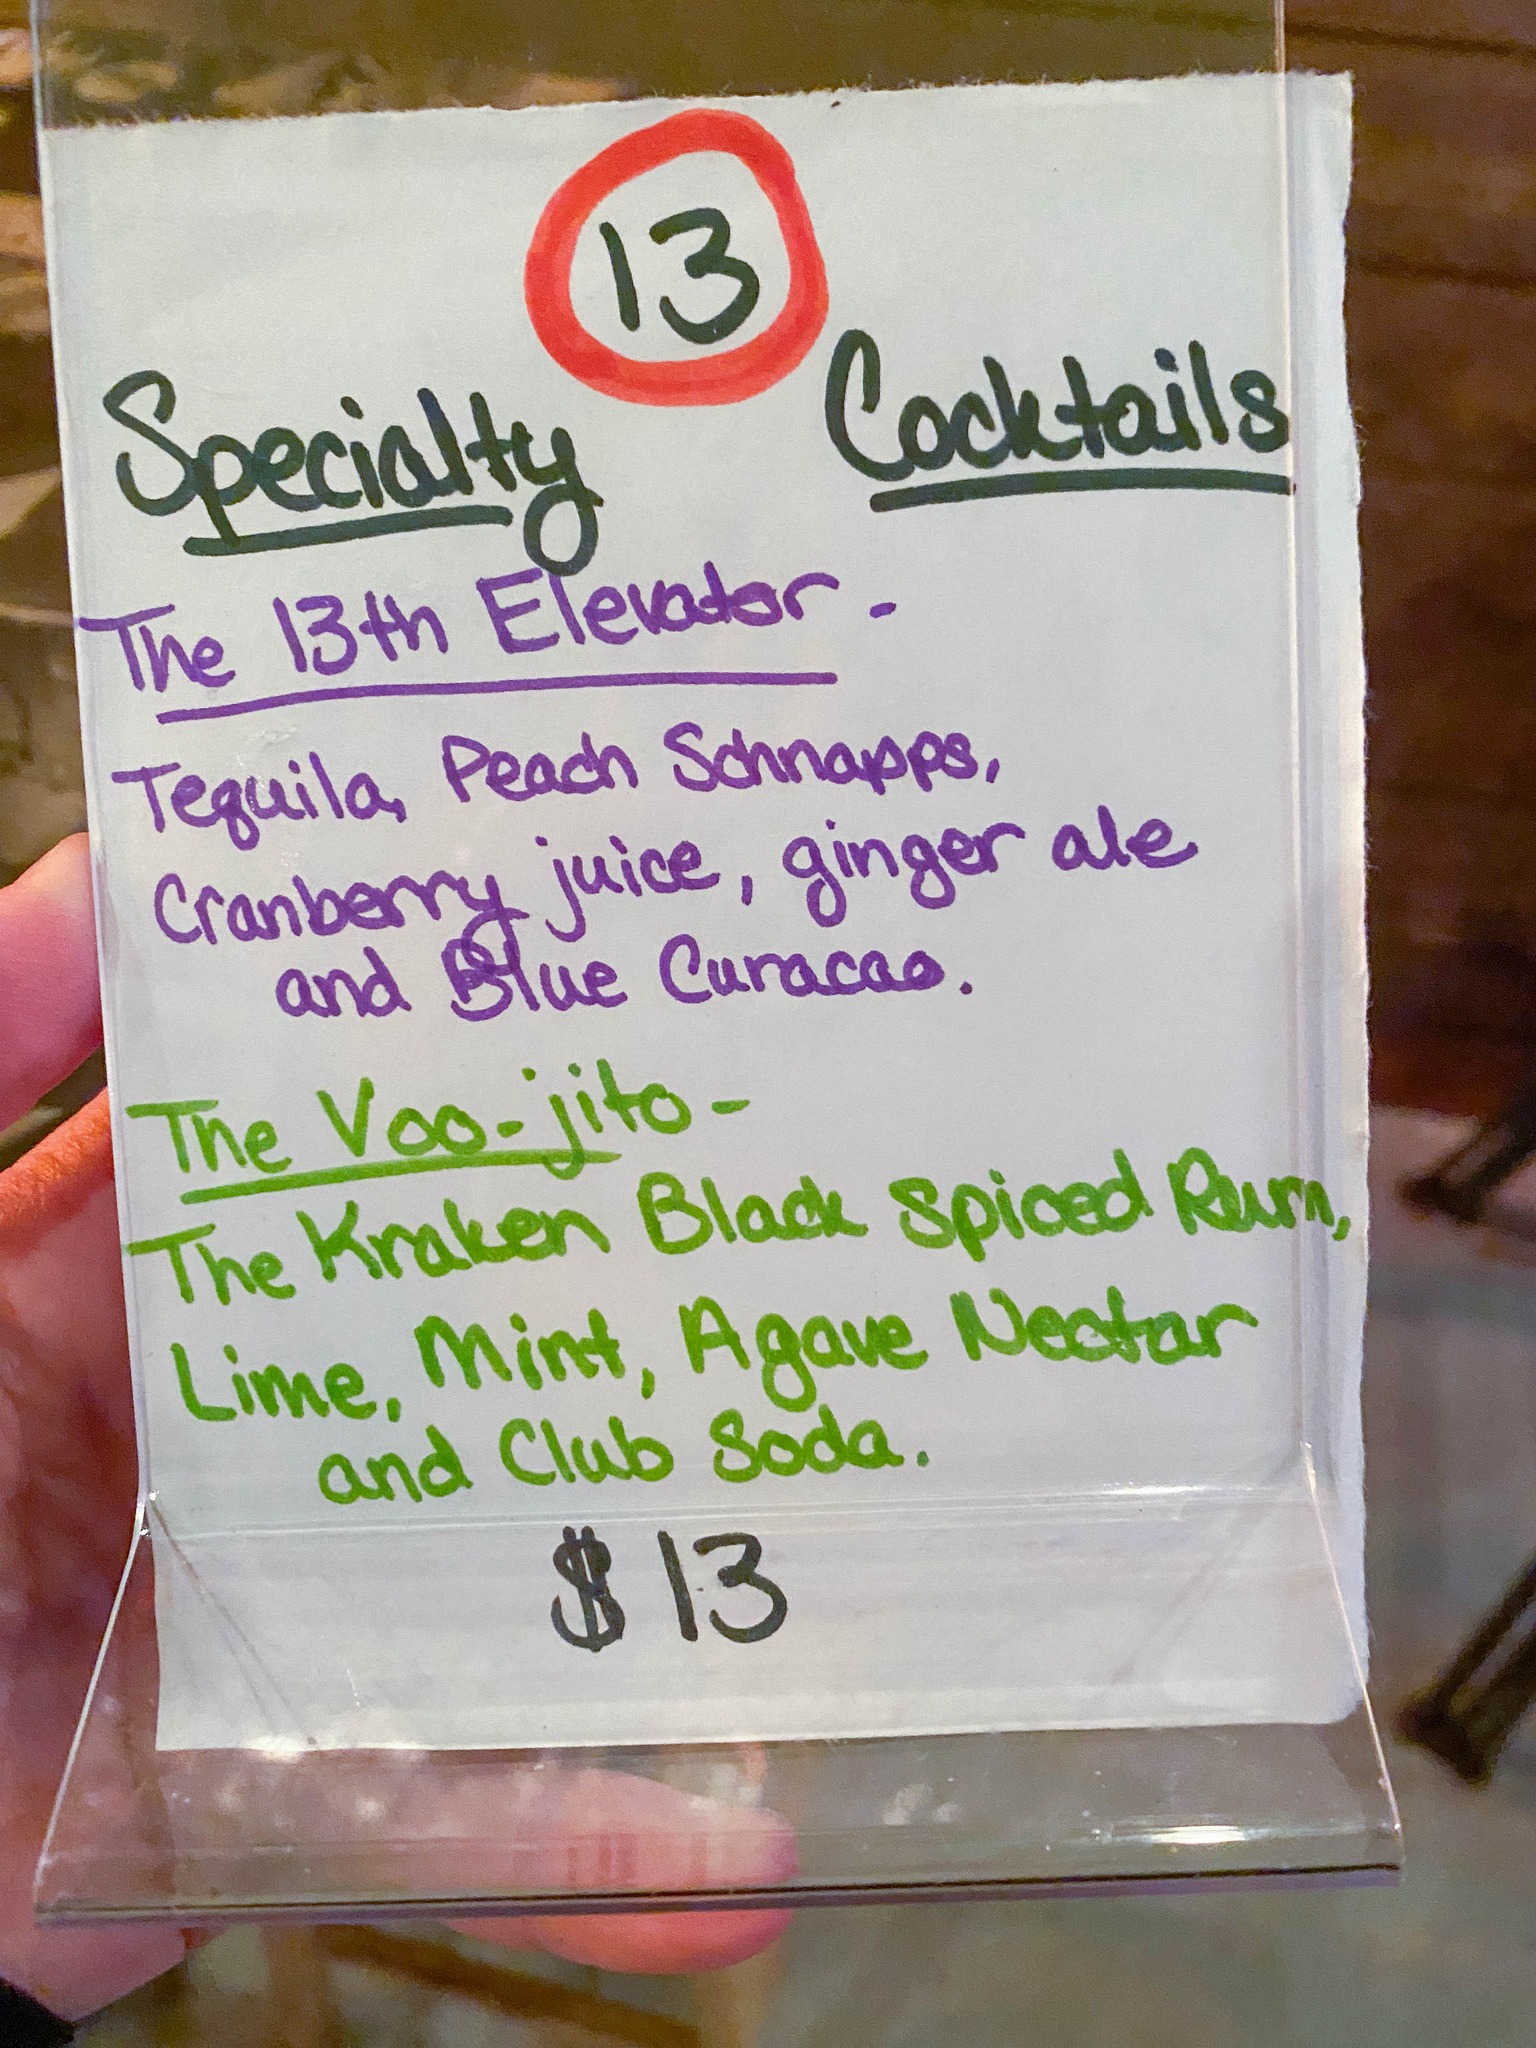 13
Specialty Cocktails
The 13th Elevator -
Tequila, Peach Schnapps,
Cranberry juice, ginger ale
and Blue Curacao.
The Voo-jito -
The Kraken Black Spiced Rum,
Lime, Mint, Agave Nectar
and Club Soda.
$13